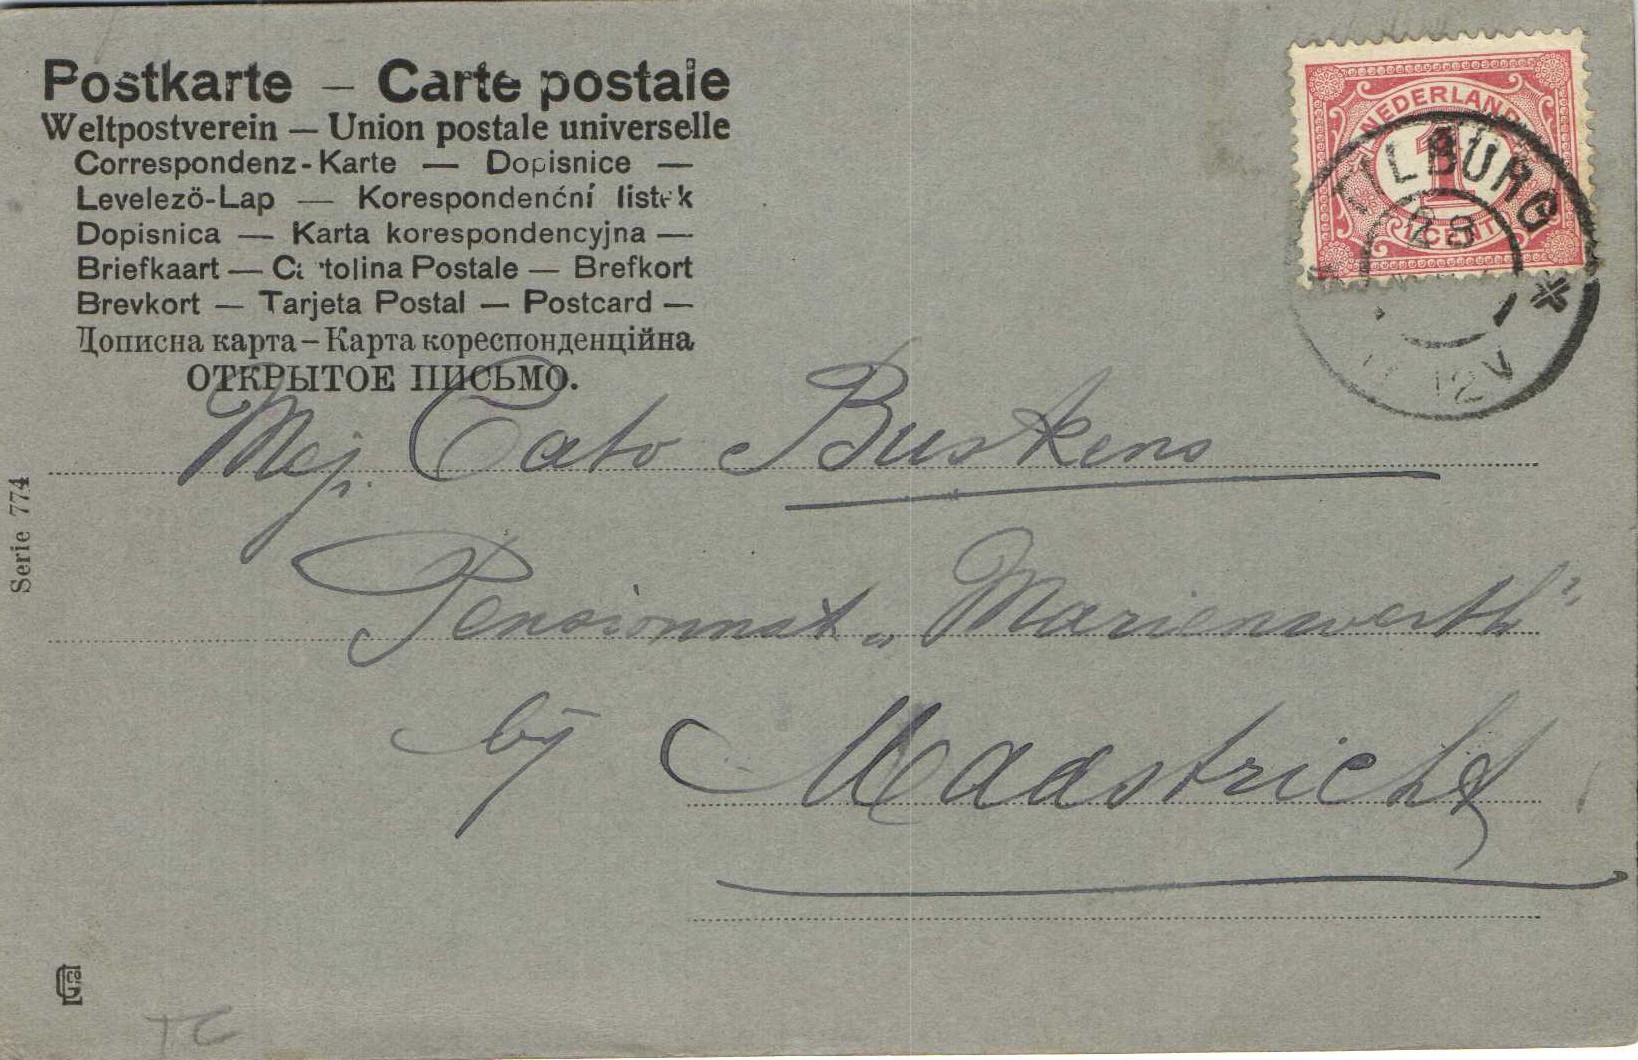 Postkarte – Carte postale
Weltpostverein — Union postale universelle
Correspondenz-Karte — Dopisnice —
Levelező-Lap — Korespondenční lístek
Dopisnica — Karta korespondencyjna —
Briefkaart — Cartolina Postale — Brefkort
Brevkort — Tarjeta Postal — Postcard —
Дописна карта – Карта кореспонденційна
ОТКРЫТОЕ ПИСЬМО.
NEDERLAND
1
1 CENT
TILBURG
28
12V
Mej. Cato Buskens
Pensionnat „Marienwerth”
bij Maastricht
Serie 774
TC